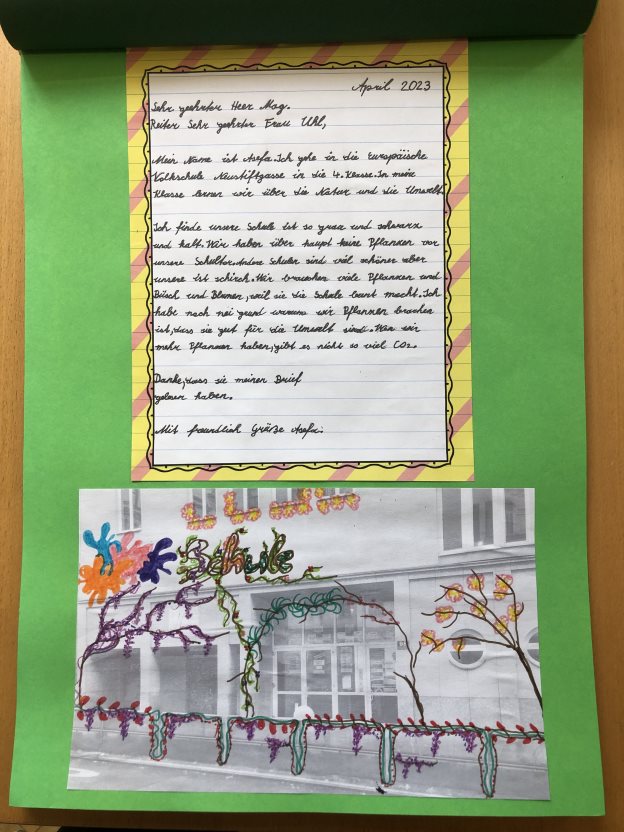 April 2023
Sehr geehrter Heer Mag.
Reiter Sehr geehrter Frau Uhl,
Mein Name ist Asefa. Ich gehe in die Europäische
Volkschule Neustiftgasse in die 4. Klasse. In meine
Klasse lernen wir über die Natur und die Umwelt.
Ich finde unsere Schule ist so grau und schwarz
und kalt. Wir haben über haupt keine Pflanzen vor
unsere Schultor. Andere Schulen sind viel schöner aber
unsere ist schirch. Wir brauchen viele Pflanzen und
Büsch und Blumen, weil sie die Schule bunt macht. Ich
habe noch nei grund warum wir Pflanzen brachen
ist, dass sie gut für die Umwelt sind. Wen wir
mehr Pflanzen haben, gibt es nicht so viel CO₂.
Danke, dass sie meinen Brief
gelesen haben.
Mit freundlich Grüße Asefa.
Schule